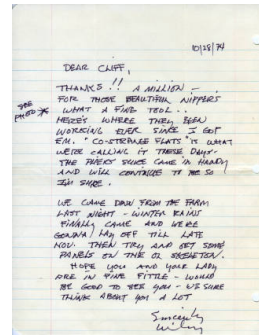 10/28/74
DEAR CLIFF,
THANKS!! A MILLION –
FOR THOSE BEAUTIFUL NIPPERS
WHAT A FINE TOOL..
SEE
PHOTO
HERE'S WHERE THEY BEEN
WORKING EVER SINCE I GOT
EM. "CO-STRANGE FLATS" IS WHAT
WE'RE CALLING IT THESE DAYS-
THE SURE CAME IN HANDY
AND WILL CONTINUE TO BE SO
I'M SURE.
WE CAME DOWN FROM THE FARM
LAST NIGHT - WINTER RAINS
FINALLY CAME AND WE'RE
GONNA LAY OFF TILL LATE
NOV. THEN TRY AND GET SOME
PANELS ON THE OL SKELETON.
HOPE YOU AND YOUR LADY
ARE IN FINE FITTLE - WOULD
BE GOOD TO SEE YOU - WE SURE
THINK ABOUT YOU A LOT
Sincerely